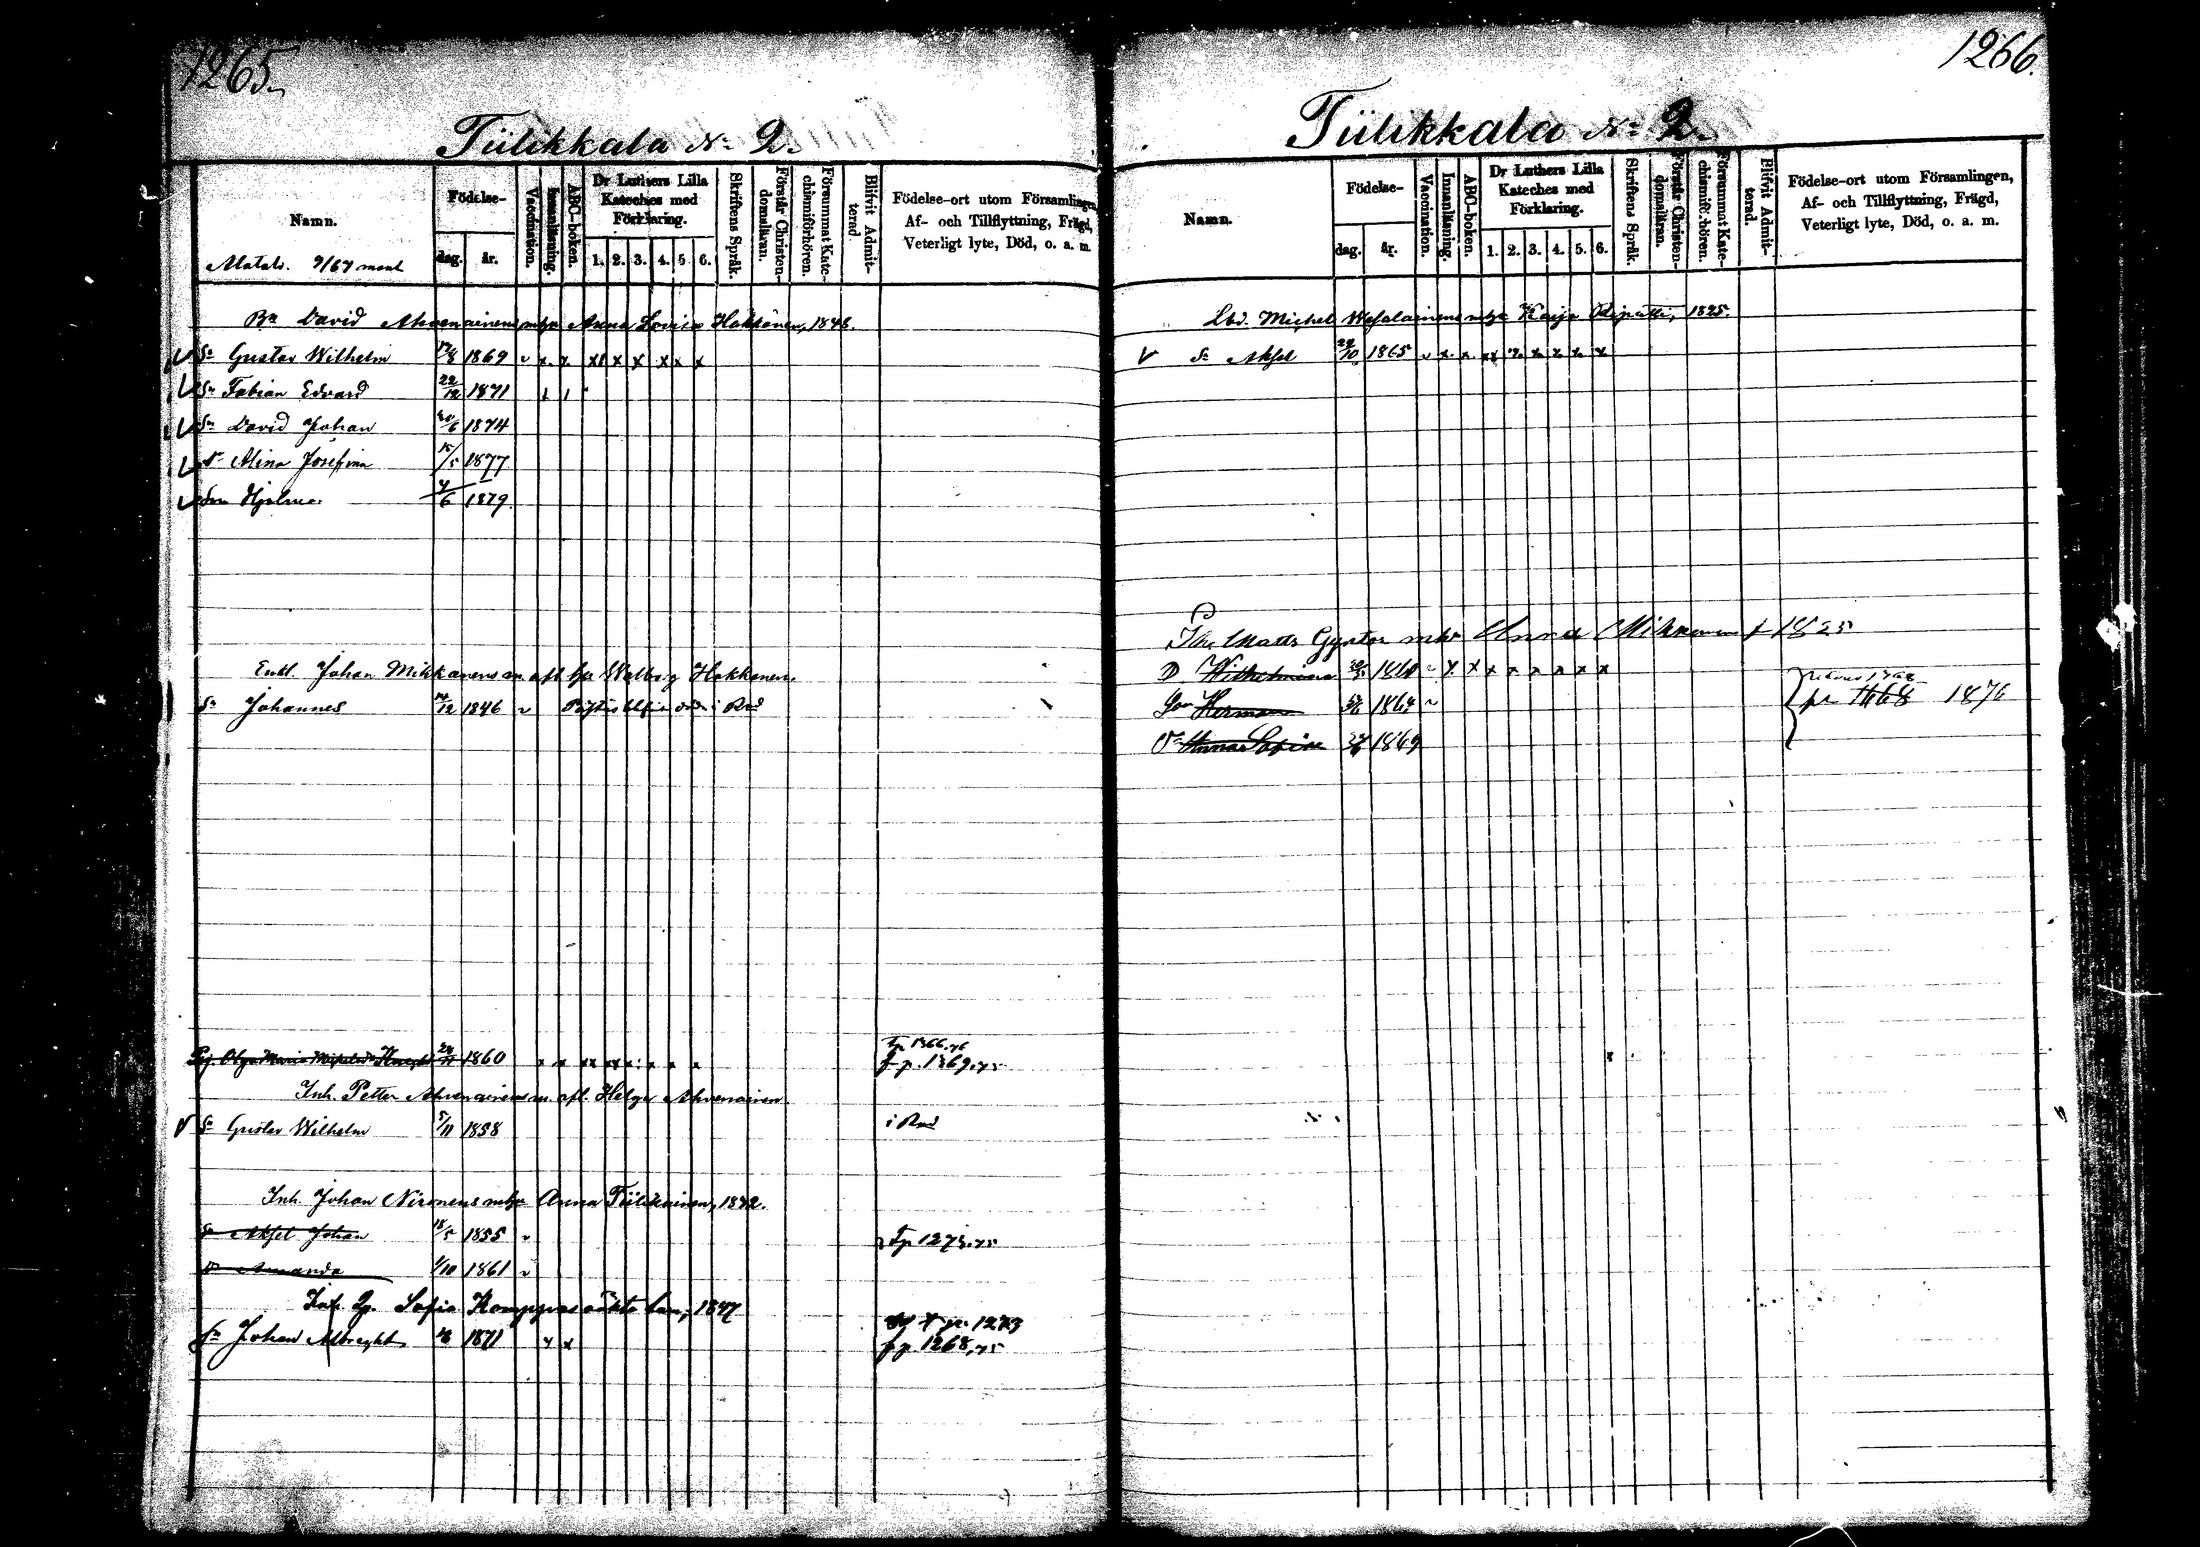 1265.
Tiilikkala No 2.
Namn.
Födelse-
dag.
år.
Vaccination.
Innanläsning.
ABC-boken.
Dr Luthers Lilla
Kateches med
Förklaring.
1. 2. 3. 4. 5. 6.
Skriftens Språk.
Förstår Christen-
domsläran.
Försummat Kate-
chismiförhören.
Blifvit Admit-
terad.
Födelse-ort utom Församlingen,
Af- och Tillflyttning, Frägd,
Veterligt lyte, Död, o. a. m.
9/64 mant
Bn David Ahvenainens mhu Anna Lovisa Hokkanen, 1848.
Sn Gustav Wilhelm 1869 v x x xx x x x x x
Sn Fabian Edvard 22/12 1871
Sn David Johan 1874
Dr Alina Josefina 15/5 1877
Son Hjalmar 4/6 1879
Enkl. Johan Mikkanens m. afl. hu Walborg Hokkanen.
Sn Johannes 1846 v
Olga Maria 1860
fp 1366,76
fp. 1369,75
Inh. Petter Ahvenainens m. afl. Helga Ahvenainen
Sn Gustav Wilhelm 5/11 1858 i Rad
Inh. Johan Nironens mhu Anna Tiilikainen, 1832.
Sn Aksel Johan 18/5 1855 v
Tp 1273,75
Dr Amanda 1/10 1861 v
Sofia 1847
Sn Johan Albreght 1871 x x
p. 1273
fp. 1268,75
1266.
Tiilikkala No 2.
Namn.
Födelse-
dag.
år.
Vaccination.
Innanläsning.
ABC-boken.
Dr Luthers Lilla
Kateches med
Förklaring.
1. 2. 3. 4. 5. 6.
Skriftens Språk.
Förstår Christen-
domsläran.
Försummat Kate-
chismiförhören.
Blifvit Admit-
terad.
Födelse-ort utom Församlingen,
Af- och Tillflyttning, Frägd,
Veterligt lyte, Död, o. a. m.
Lbd. Michel mhu Kaisa 1825.
Sn Aksel 29/10 1865 v x x xx x x x x x
Matts Anna Mikkanen f 1825
D Wilhelmina 1860 v x x x x x x x x
Son Herman 1864 v
pr 1468 1876
Dr Anna Sofia 1869